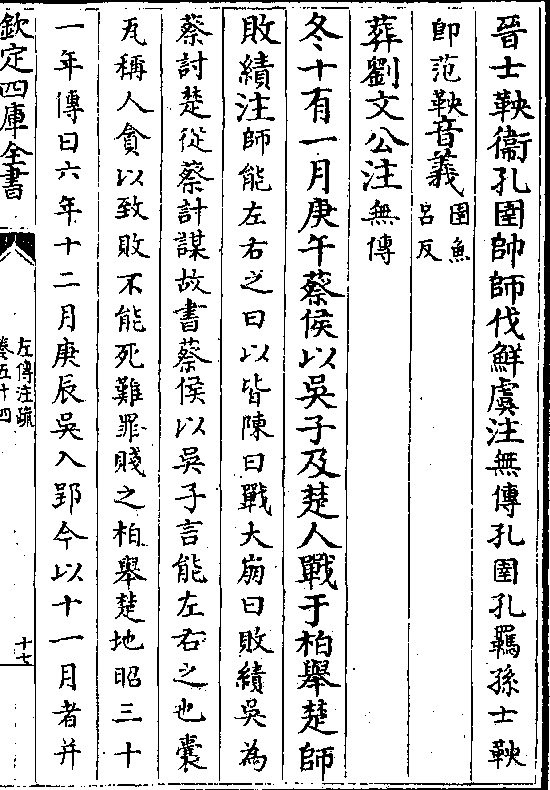 晉士鞅衞孔圉帥師伐鮮虞注無傳孔圉孔羈孫士鞅
卽范鞅音義圉魚呂反
葬劉文公注無傳
冬十有一月庚午蔡侯以吳子及楚人戰于柏舉楚師
敗績注師能左右之曰以皆陳曰戰大崩曰敗績吳為
蔡討楚從蔡計謀故書蔡侯以吳子言能左右之也囊
瓦稱人貪以致敗不能死難罪賤之柏舉楚地昭三十
一年傳曰六年十二月庚辰吳入郢今以十一月者并
欽定四庫全書
左傳注疏
卷五十四
十七